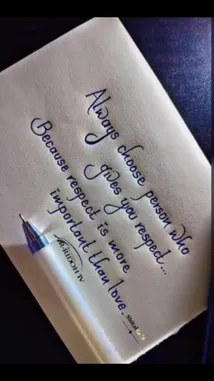 Always choose person who
gives you respect...
Because respect is more
important than love.